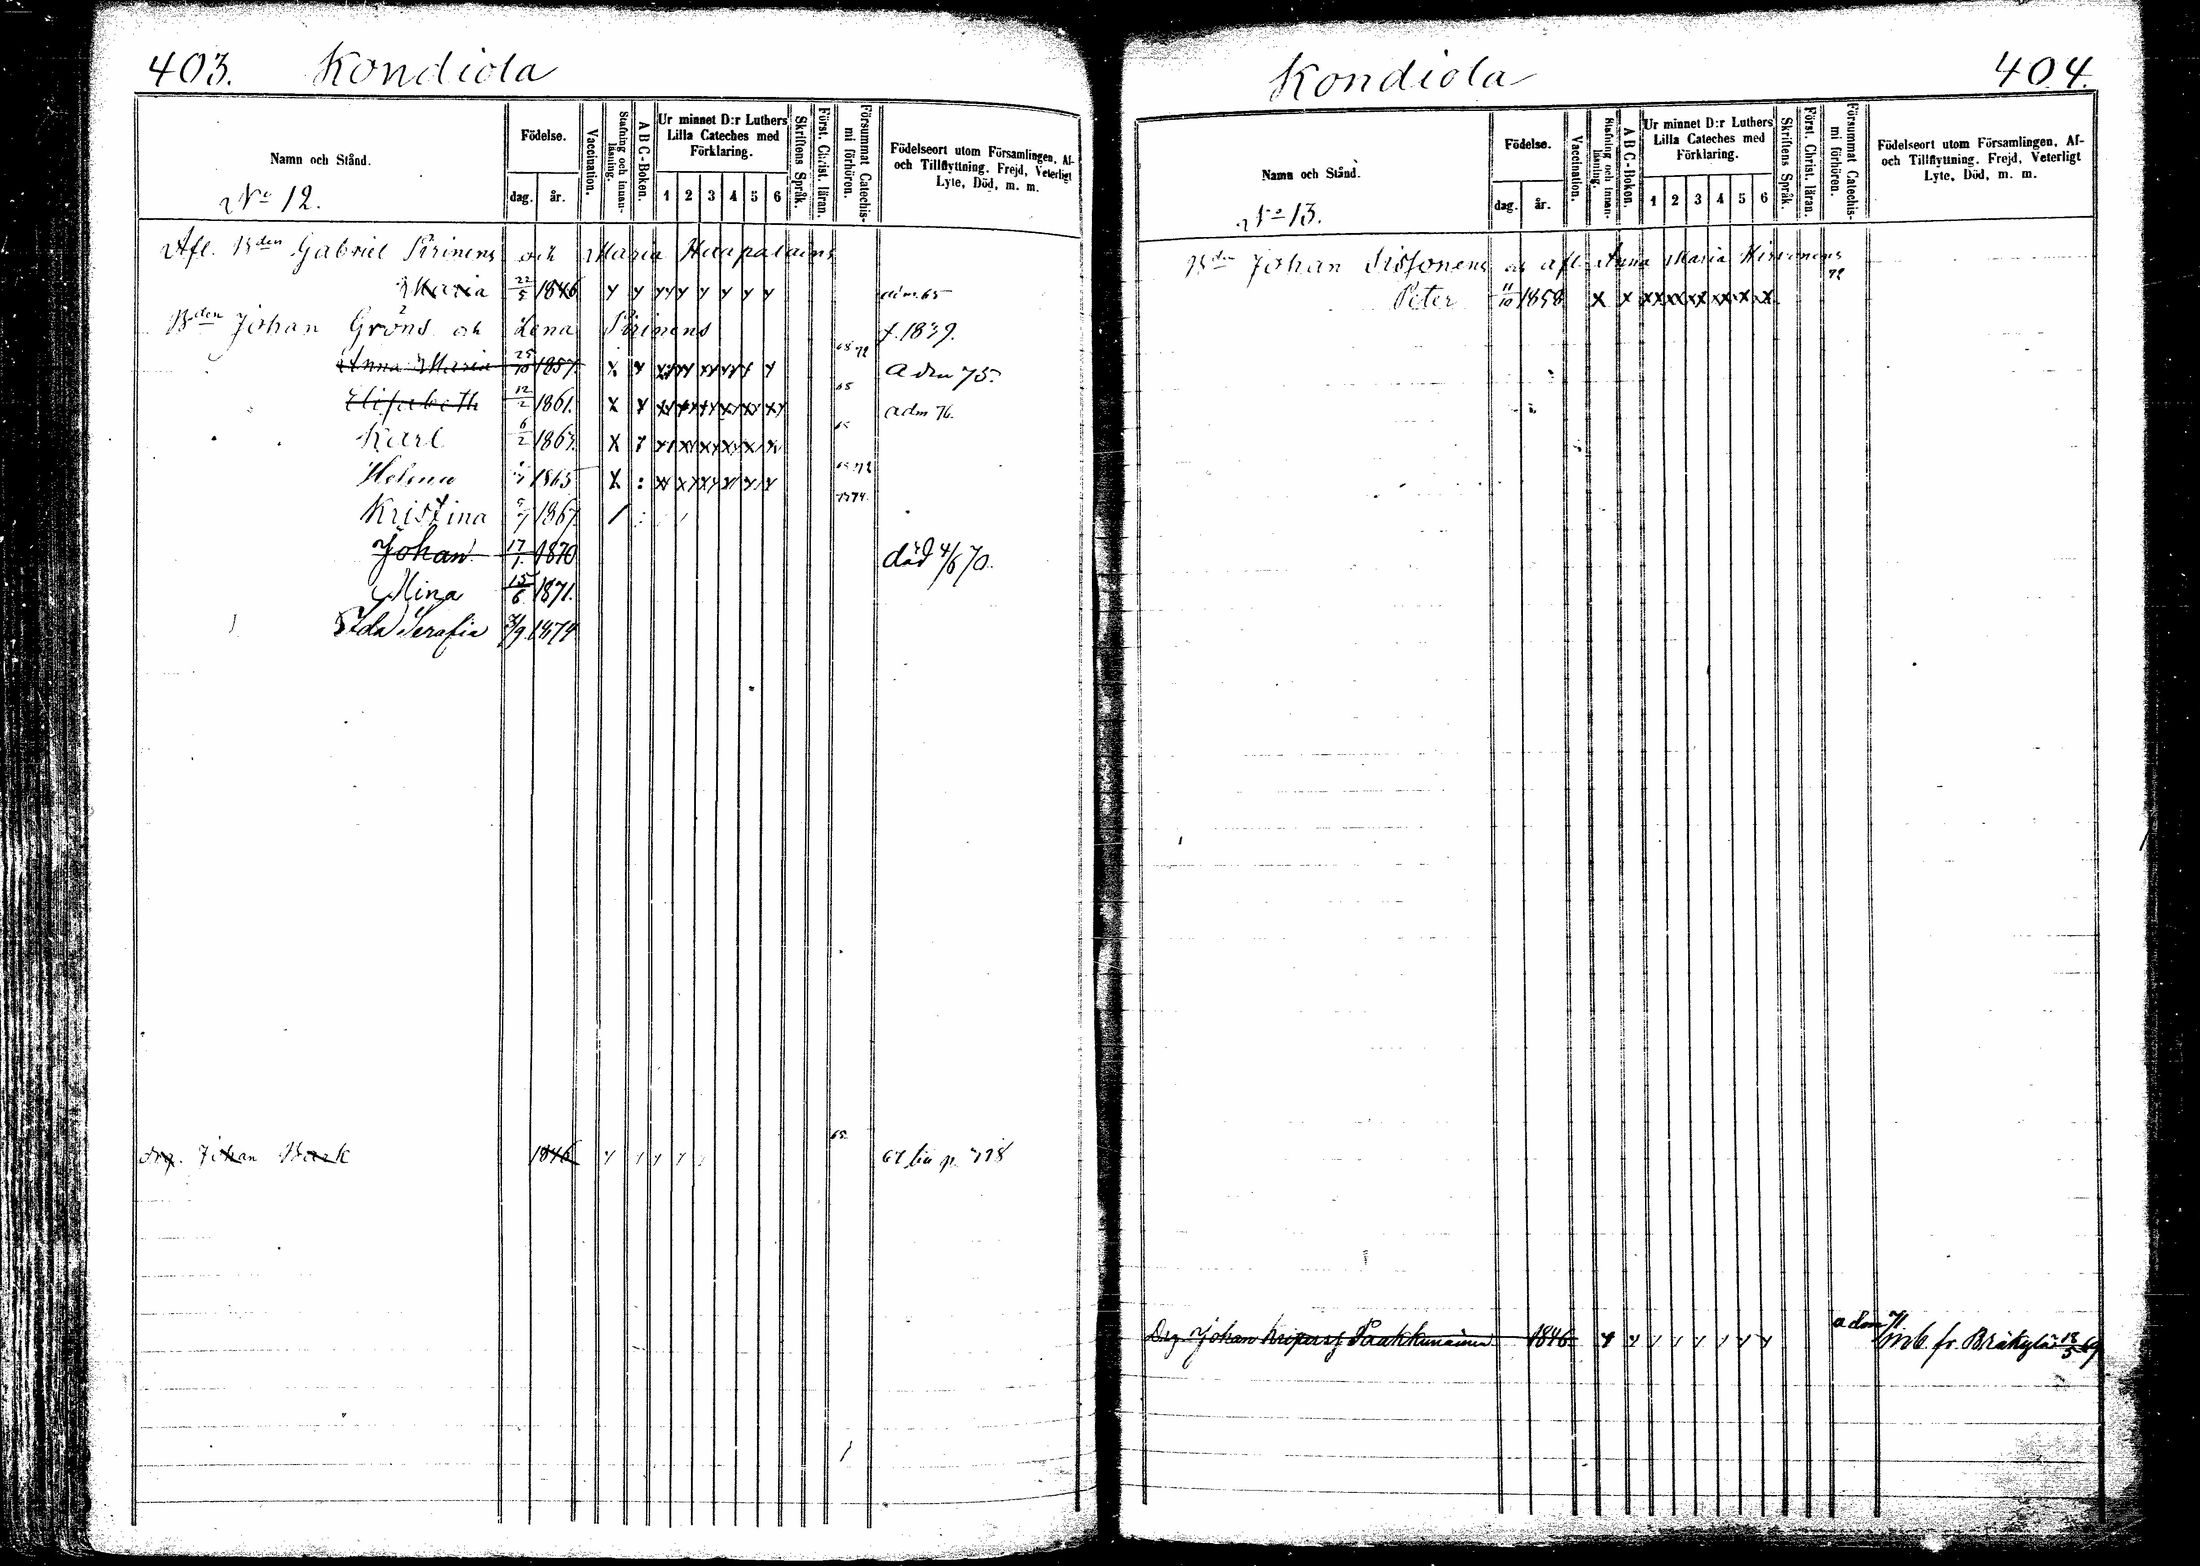 403. Kondiola
Namn och Stånd.
No 12.
Födelse.
dag. år.
Vaccination.
Stafning och innan-läsning.
A B C-Boken.
Ur minnet D:r Luthers
Lilla Cateches med
Förklaring.
1 2 3 4 5 6
Skriftens Språk.
Först. Christ. läran.
Försummat Catechis-mi förhören.
Födelseort utom Församlingen, Af-
och Tillflyttning. Frejd, Veterligt
Lyte, Död, m. m.
Afl. Bden Gabriel Pirinens och Maria Haapalains
Maria 22/5 1846 adm 65
Bden Johan Gröns och Lena Pirinens f. 1839.
Anna Maria 25/10 1857. 68 72 adm 75.
Elisabeth 12/2 1861. 65 adm 76.
Karl 6/2 1863.
Helena 1865 68 72
Kristina 1867
Johan 17/1. 1870 död 4/6 70.
Mina 15/6 1871.
Ida Serafia /9 1874
drg. Johan Bark 1846 65. p. 718
Kondiola 404.
Namn och Stånd.
No 13.
Födelse.
dag. år.
Vaccination.
Stafning och innan-läsning.
A B C-Boken.
Ur minnet D:r Luthers
Lilla Cateches med
Förklaring.
1 2 3 4 5 6
Skriftens Språk.
Först. Christ. läran.
Försummat Catechis-mi förhören.
Födelseort utom Församlingen, Af-
och Tillflyttning. Frejd, Veterligt
Lyte, Död, m. m.
Bden Johan Sissonens o. afl. Anna Maria Hirvonens
Peter 11/10 1858 72
Drg. Johan Paakkunainen 1846 adm 71 fr. Bräkylä 69